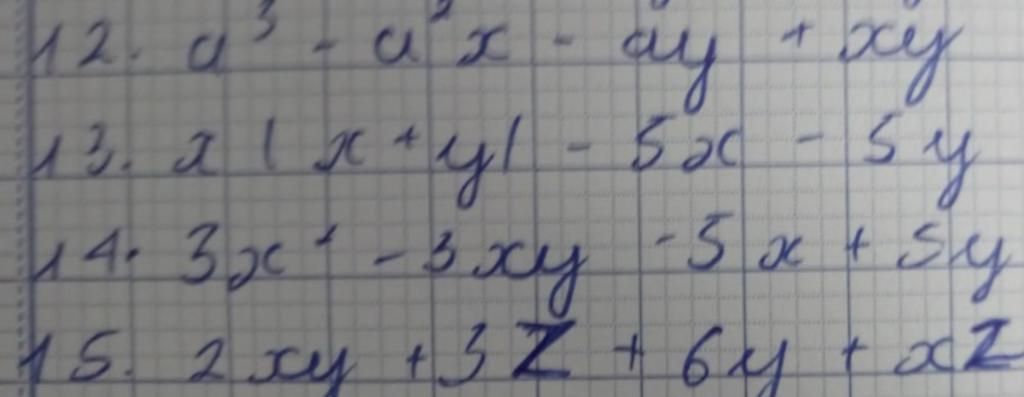 12. a³ - a²x - ay + xy
13. x(x+y) - 5x - 5y
14. 3x² - 3xy - 5x + 5y
15. 2xy + 3z + 6y + xz